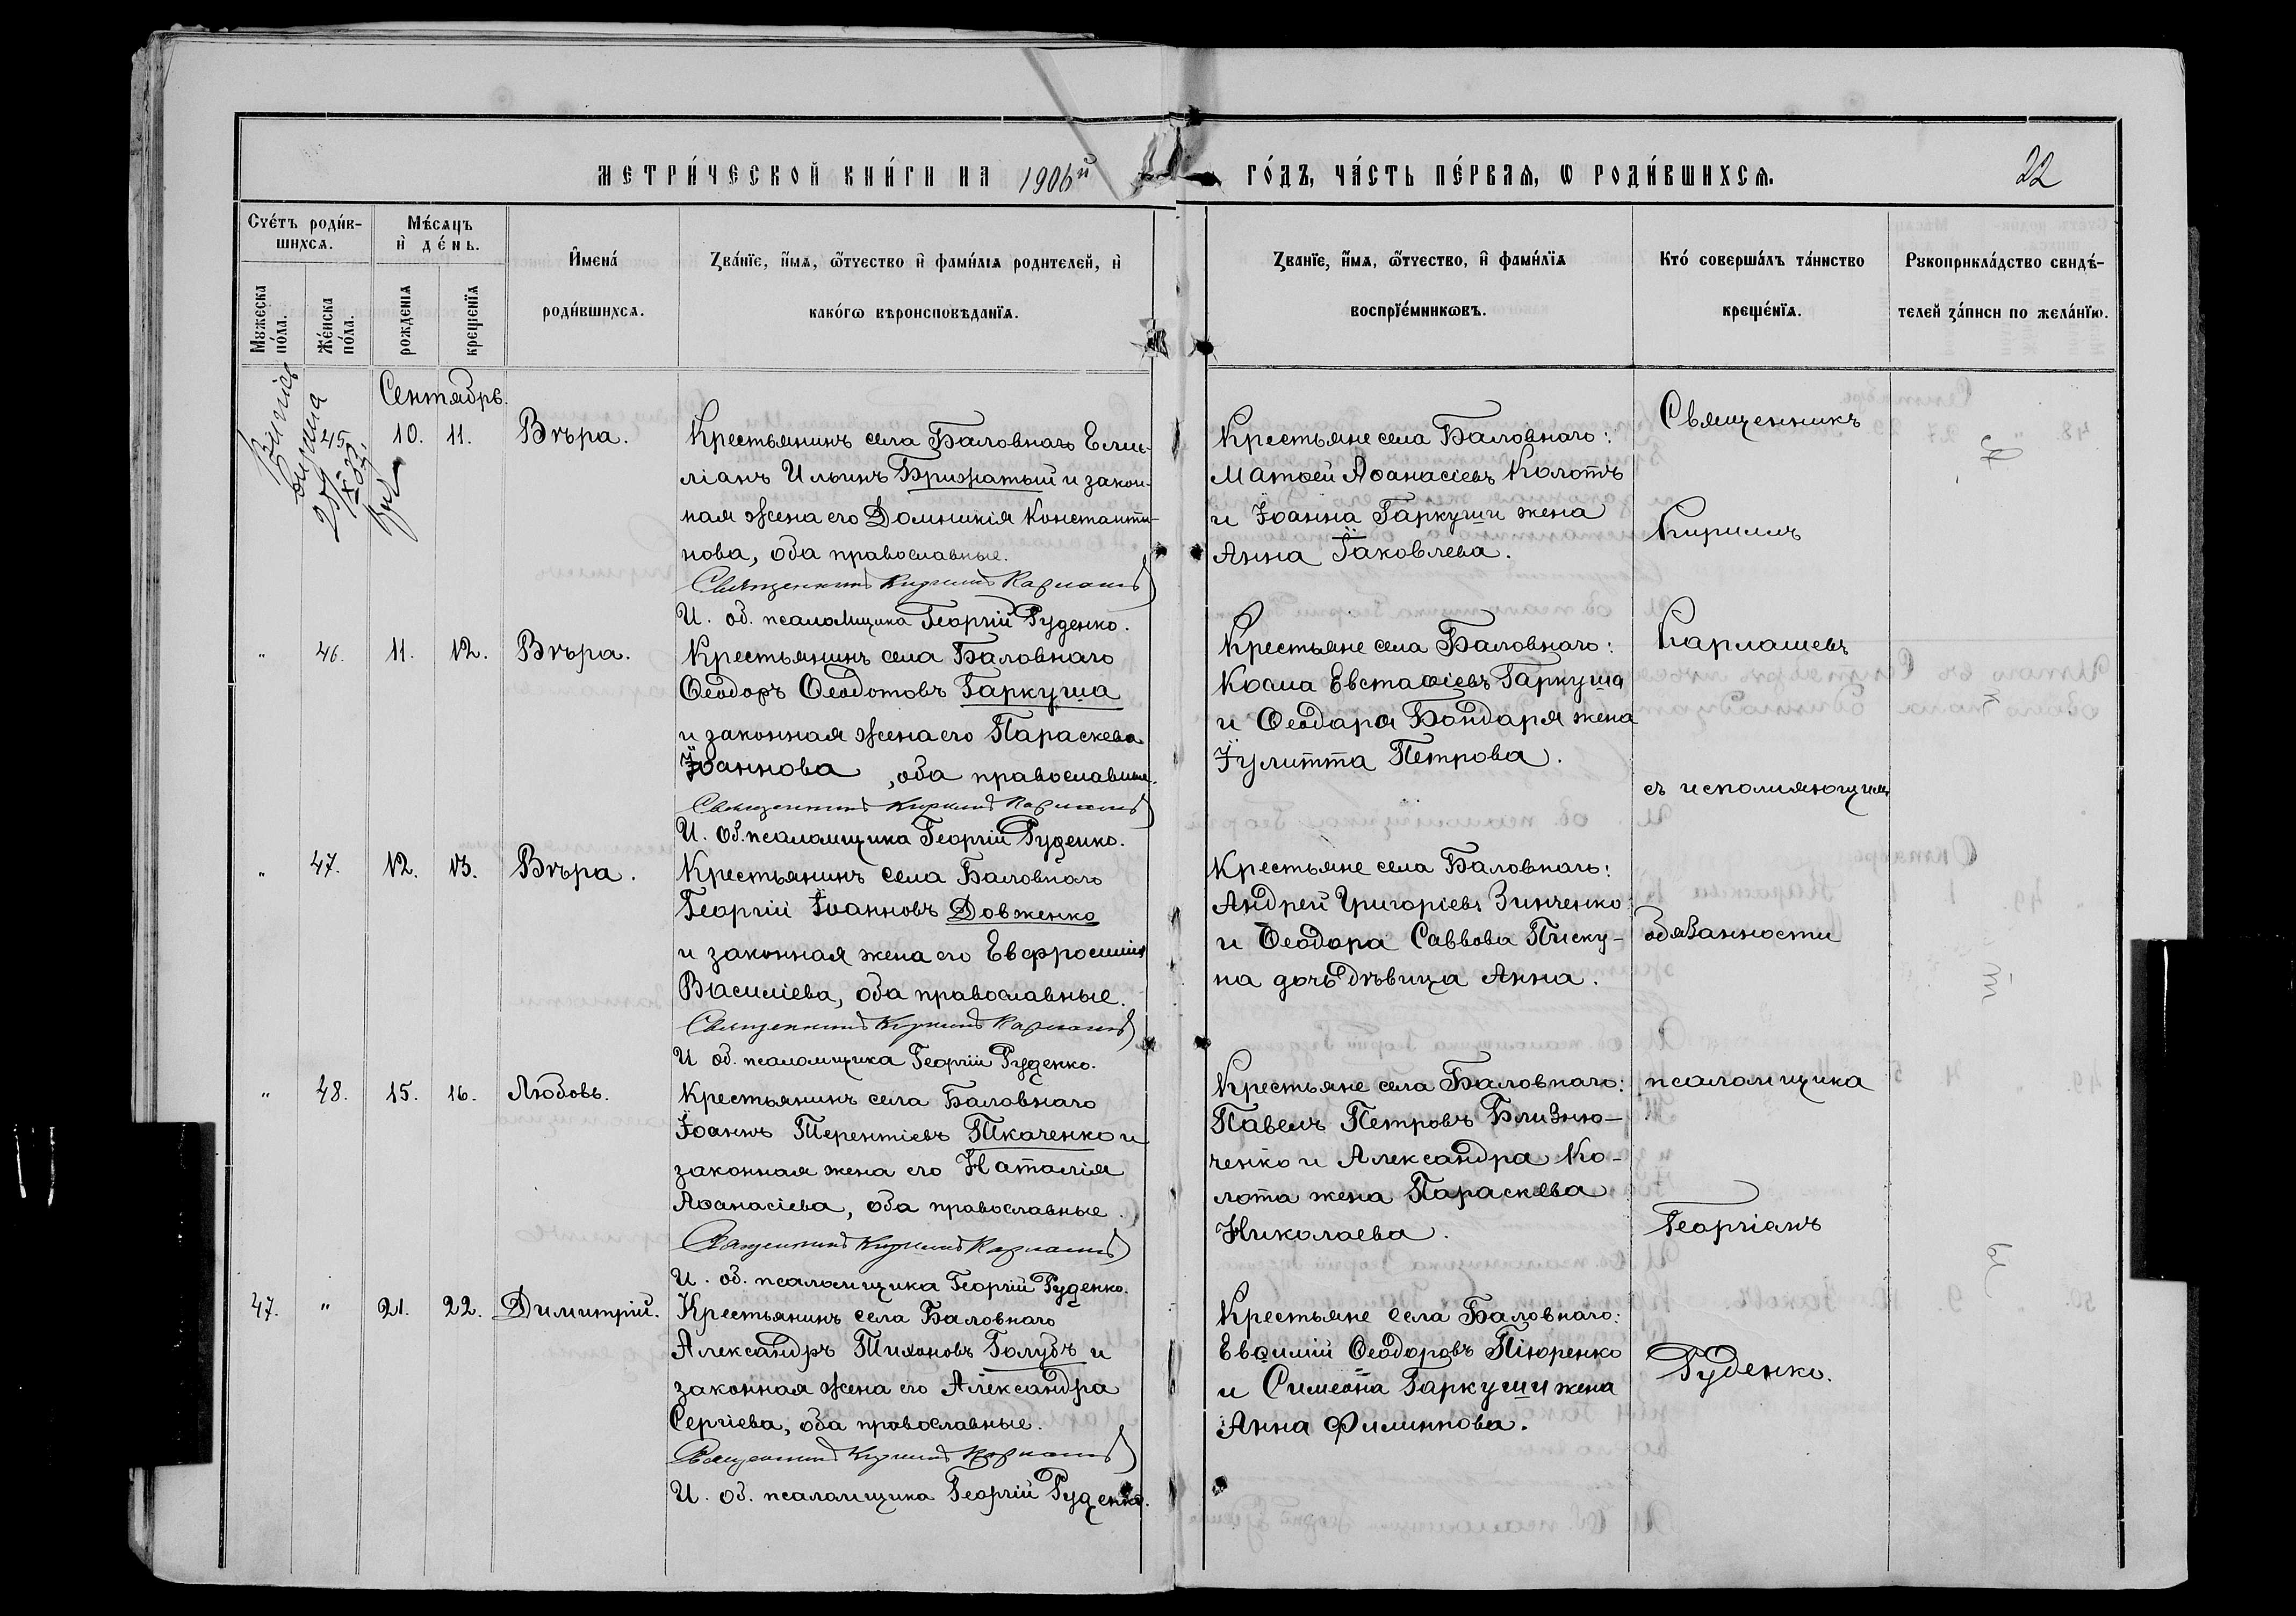 МЕТРИ́ЧЕСКОЙ КНИ́ГИ НА 1906й ГО́ДЪ, ЧА́СТЬ ПЕ́РВАЯ, Ѡ РОДИ́ВШИХСЯ.
22
Сче́тъ роди́в-
шихся.
Мѣ́сяцъ
и де́нь.
Мꙋжеска
по́ла.
Же́нска
по́ла.
рожденїѧ
крещенїѧ
И҆мена́
роди́вшихсѧ.
Зва́нїе, и҆́мѧ, ѻ҆́тчество и҆ фами́лїѧ родителей, и҆
како́гѡ вѣроисповѣданїѧ.
Зва́нїе, и҆́мѧ, ѻ҆́тчество, и҆ фами́лїѧ
воспрїе́мникѡвъ.
Кто́ соверша́лъ та́инство
креще́нїѧ.
Рꙋкоприкла́дство свидѣ́-
телей за́писи по жела́нїю.
Сентябрь.
45
10.
11.
Вѣра.
Крестьянинъ села Баловнаго Еми-
ліанъ Ильинъ Брижатый и закон-
ная жена его Домникія Константи-
нова, оба православные.
Священникъ Кириллъ Карлашевъ
И. об. псаломщика Георгій Руденко.
Крестьяне села Баловнаго:
Матѳей Аѳанасіевъ Колотъ
и Іоанна Гаркуши жена
Анна Іаковлева.
"
46.
11.
12.
Вѣра.
Крестьянинъ села Баловнаго
Ѳеодоръ Ѳеодотовъ Гаркуша
и законная жена его Параскева
Іоаннова, оба православные.
Священникъ Кириллъ Карлашевъ
И. об. псаломщика Георгій Руденко.
Крестьяне села Баловнаго:
Косма Евстаѳіевъ Гаркуша
и Ѳеодора Бондаря жена
Іулитта Петрова.
"
47.
12.
13.
Вѣра.
Крестьянинъ села Баловнаго
Георгій Іоанновъ Довженко
и законная жена его Евфросинія
Василіева, оба православные.
Священникъ Кириллъ Карлашевъ
И об. псаломщика Георгій Руденко.
Крестьяне села Баловнаго:
Андрей Григоріевъ Зинченко
и Ѳеодора Саввова Писку-
на дочь дѣвица Анна.
"
48.
15.
16.
Любовь.
Крестьянинъ села Баловнаго
Іоаннъ Терентіевъ Ткаченко и
законная жена его Наталія
Аѳанасіева, оба православные.
Священникъ Кириллъ Карлашевъ
И. об. псаломщика Георгій Руденко.
Крестьяне села Баловнаго:
Павелъ Петровъ Близню-
ченко и Александра Ко-
лота жена Параскева
Николаева.
47.
"
21.
22.
Димитрій.
Крестьянинъ села Баловнаго
Александръ Тихоновъ Голубъ и
законная жена его Александра
Сергіева, оба православные.
Священникъ Кириллъ Карлашевъ
И. об. псаломщика Георгій Руденко.
Крестьяне села Баловнаго:
Евѳимій Ѳеодоровъ Пюренко
и Симеона Гаркуши жена
Анна Филиппова.
Священникъ
Кириллъ
Карлашевъ
съ исполняющимъ
обязанности
псаломщика
Георгіемъ
Руденко.